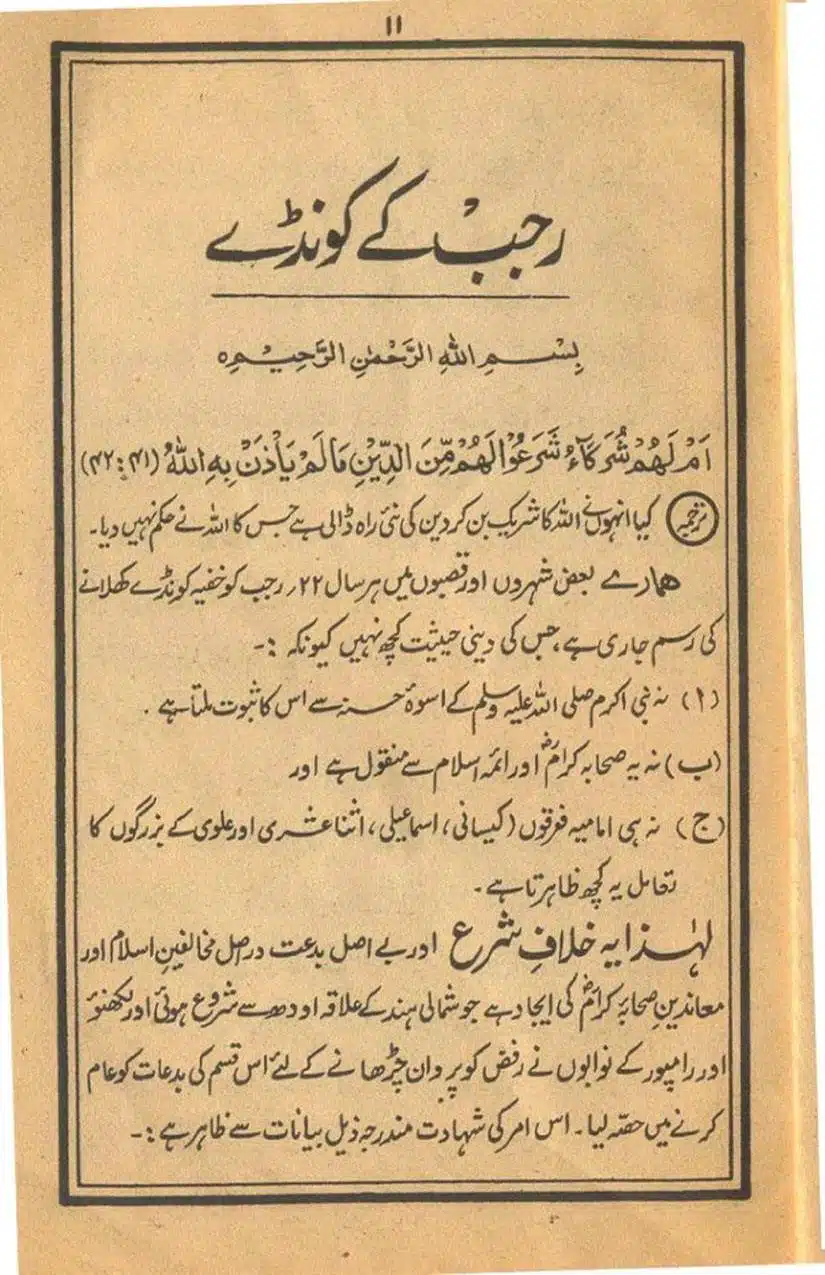 ۱۱
رجب کے کونڈے
بِسْمِ اللهِ الرَّحْمٰنِ الرَّحِيْمِ ہ
اَمْ لَهُمْ شُرَكَآءُ شَرَعُوْا لَهُمْ مِّنَ الدِّيْنِ مَا لَمْ يَأْذَنْ بِهِ اللهُ (۴۲:۴۱)
ترجمہ کیا انہوں نے اللہ کا شریک بن کر دین کی نئی راہ ڈالی ہے جس کا اللہ نے حکم نہیں دیا۔
ہمارے بعض شہروں اور قصبوں میں ہر سال ۲۲؍ رجب کو خفیہ کونڈے کھلانے
کی رسم جاری ہے، جس کی دینی حیثیت کچھ نہیں کیونکہ :-
(ا) نہ نبی اکرم صلی اللہ علیہ وسلم کے اسوۂ حسنہ سے اس کا ثبوت ملتا ہے۔
(ب) نہ یہ صحابہ کرامؓ اور ائمہ اسلام سے منقول ہے اور
(ج) نہ ہی امامیہ فرقوں (کیسانی، اسماعیلی، اثنا عشری اور علوی کے بزرگوں کا
تعامل یہ کچھ ظاہر تا ہے۔
لہٰذا یہ خلافِ شرع اور بے اصل بدعت دراصل مخالفینِ اسلام اور
معاندینِ صحابۂ کرامؓ کی ایجاد ہے جو شمالی ہند کے علاقہ اودھ سے شروع ہوئی اور لکھنؤ
اور رامپور کے نوابوں نے رفض کو پروان چڑھانے کے لئے اس قسم کی بدعات کو عام
کرنے میں حصہ لیا۔ اس امر کی شہادت مندرجہ ذیل بیانات سے ظاہر ہے :-